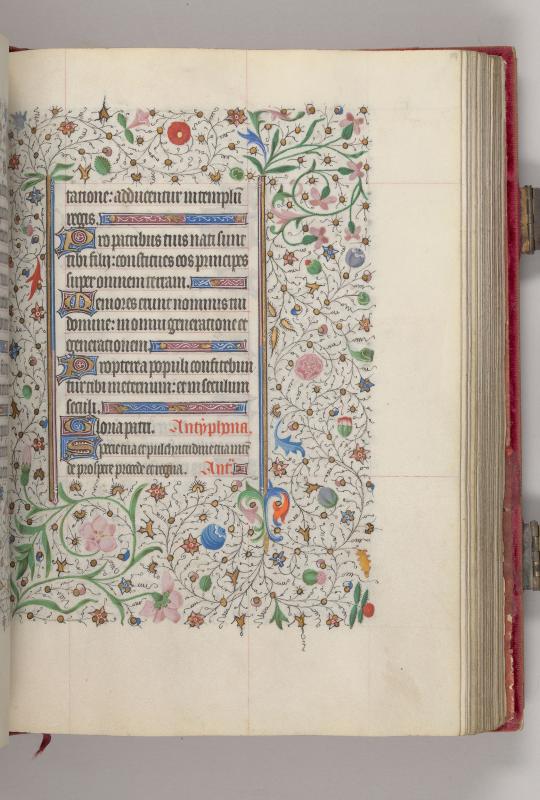 ratione: adducentur in templū
regis.
Pro patribus tuis nati sunt
tibi filij: constitues eos principes
super omnem terram.
Memores erunt nominis tui
domine: in omni generatione et
generationem
Propterea populi confitebun
tur tibi in eternum: et in seculum
seculi.
Gloria patri. Antyphona.
Specie tua et pulchritudine tua intē
de prospere procede et regna. Añ.